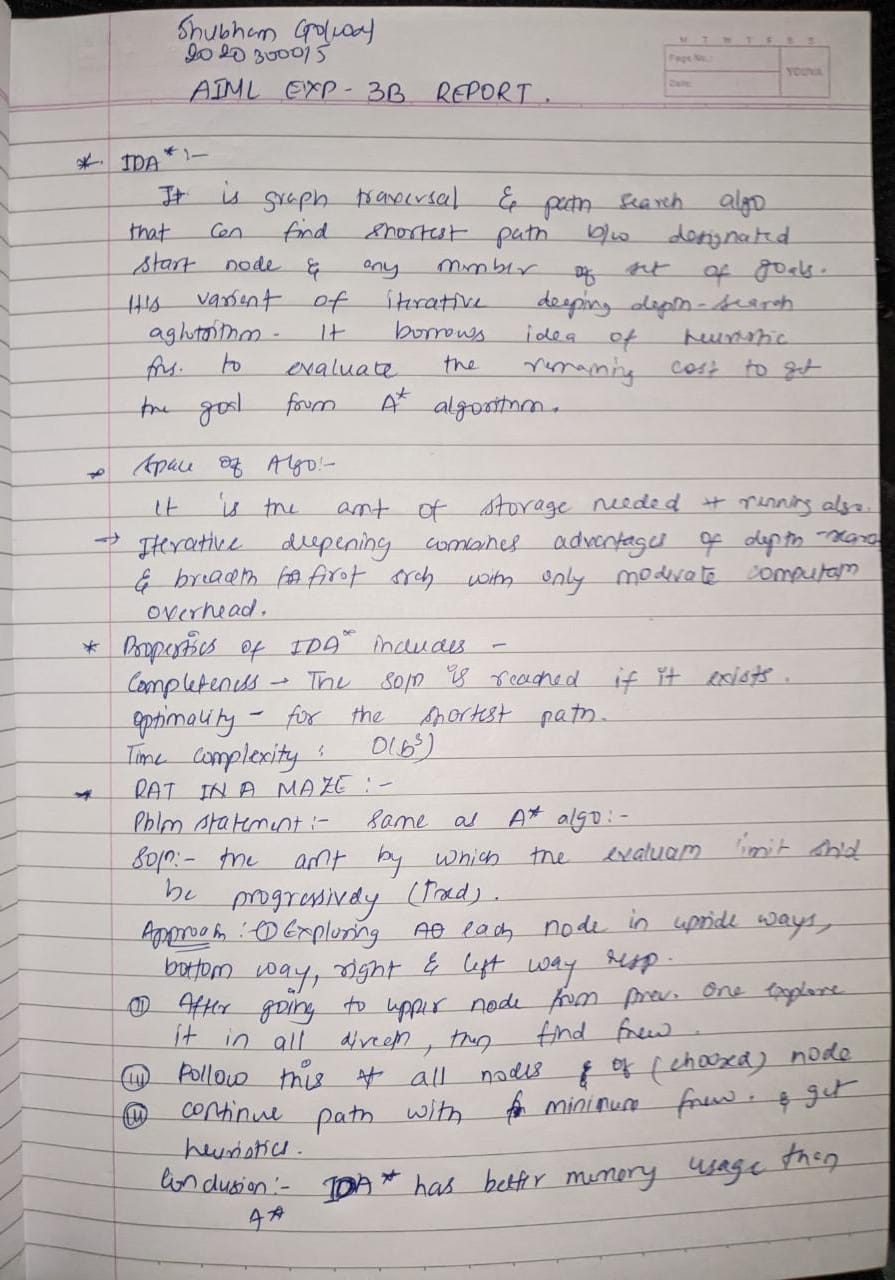 Shubham Golwal
2020300015
M T W T F S S
Page No.:
Date:
YOUVA
AIML EXP - 3B REPORT.
* IDA* :-
It is graph traversal & path search algo
that can find shortest path b/w designated
start node & any member of set of goals.
It's varient of iterative deeping depth-search
It borrows idea of heuristic
fns. to evaluate the remaining cost to get
the goal from A* algorithm.
→ Space of Algo:-
It is the amt of storage needed running algo.
→ Iterative deepening combines advantages of depth
& breadth first srch with only moderate computatn
overhead.
* Properties of IDA* includes -
Completeness → The soln is reached if it exists.
Optimality - for the shortest path.
Time complexity :
→ RAT IN A MAZE :-
Pblm statement :- Same as A* algo:-
Soln:- the amt by which the evaluatn limit shld
be progressively
Approach : ① Exploring each node in upside ways,
bottom way, right & left way resp.
② After going to upper node from prev. one explore
it in all directn, then find fnew.
Follow this all nodes of node
continue path with minimum fnew. & get
heuristics.
Conclusion:- IDA* has better memory usage then
A*